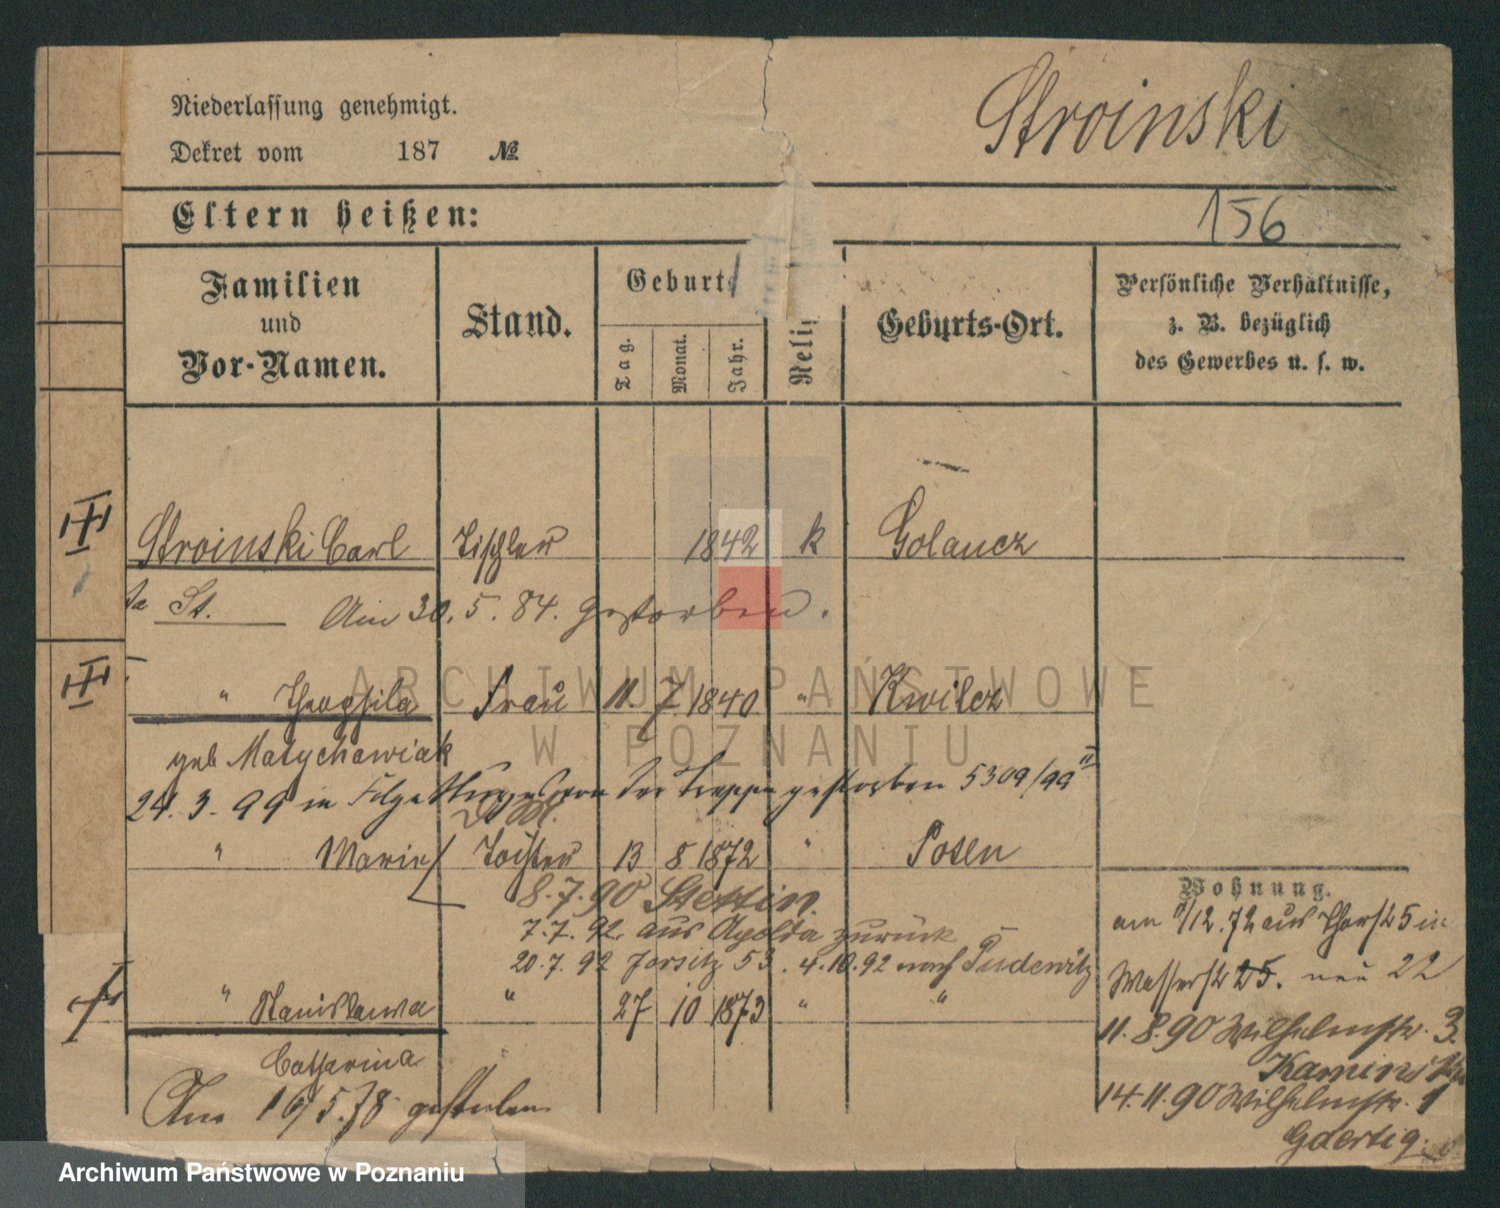 Niederlassung genehmigt.
Stroinski
Dekret vom 187 №
Eltern heißen:
156
Familien und Vor-Namen.
Stand.
Geburts
Tag.
Monat.
Jahr.
Relig
Geburts-Ort.
Persönliche Verhältnisse,
z. B. bezüglich
des Gewerbes u. s. w.
Stroinski Carl Tischler 1842 k Golancz
St. Am 30.5.84. gestorben.
" Theophila Frau 11. 7. 1840 " Kwilcz
geb Matychawiak
24.3.99 in Folge von der Treppe gestorben 5309/99 II
" Marie Tochter 13 8 1872 " Posen
8.7.90 Stettin.
7.7.92. aus Apolda zurück
20.7.92 Jersitz 53. 4.10.92 nach Pudewitz
" Stanislawa " 27 10 1873 " "
Catharina
Am 16/5.78 gestorben
Wohnung.
am /12.72 aus Thorst 5 in
Wasserst 25. neu 22
11.8.90 Wilhelmstr. 3.
Kaminski
14.11.90 Wilhelmstr. 1
Goertig.
ARCHIWUM PAŃSTWOWE
W POZNANIU
Archiwum Państwowe w Poznaniu